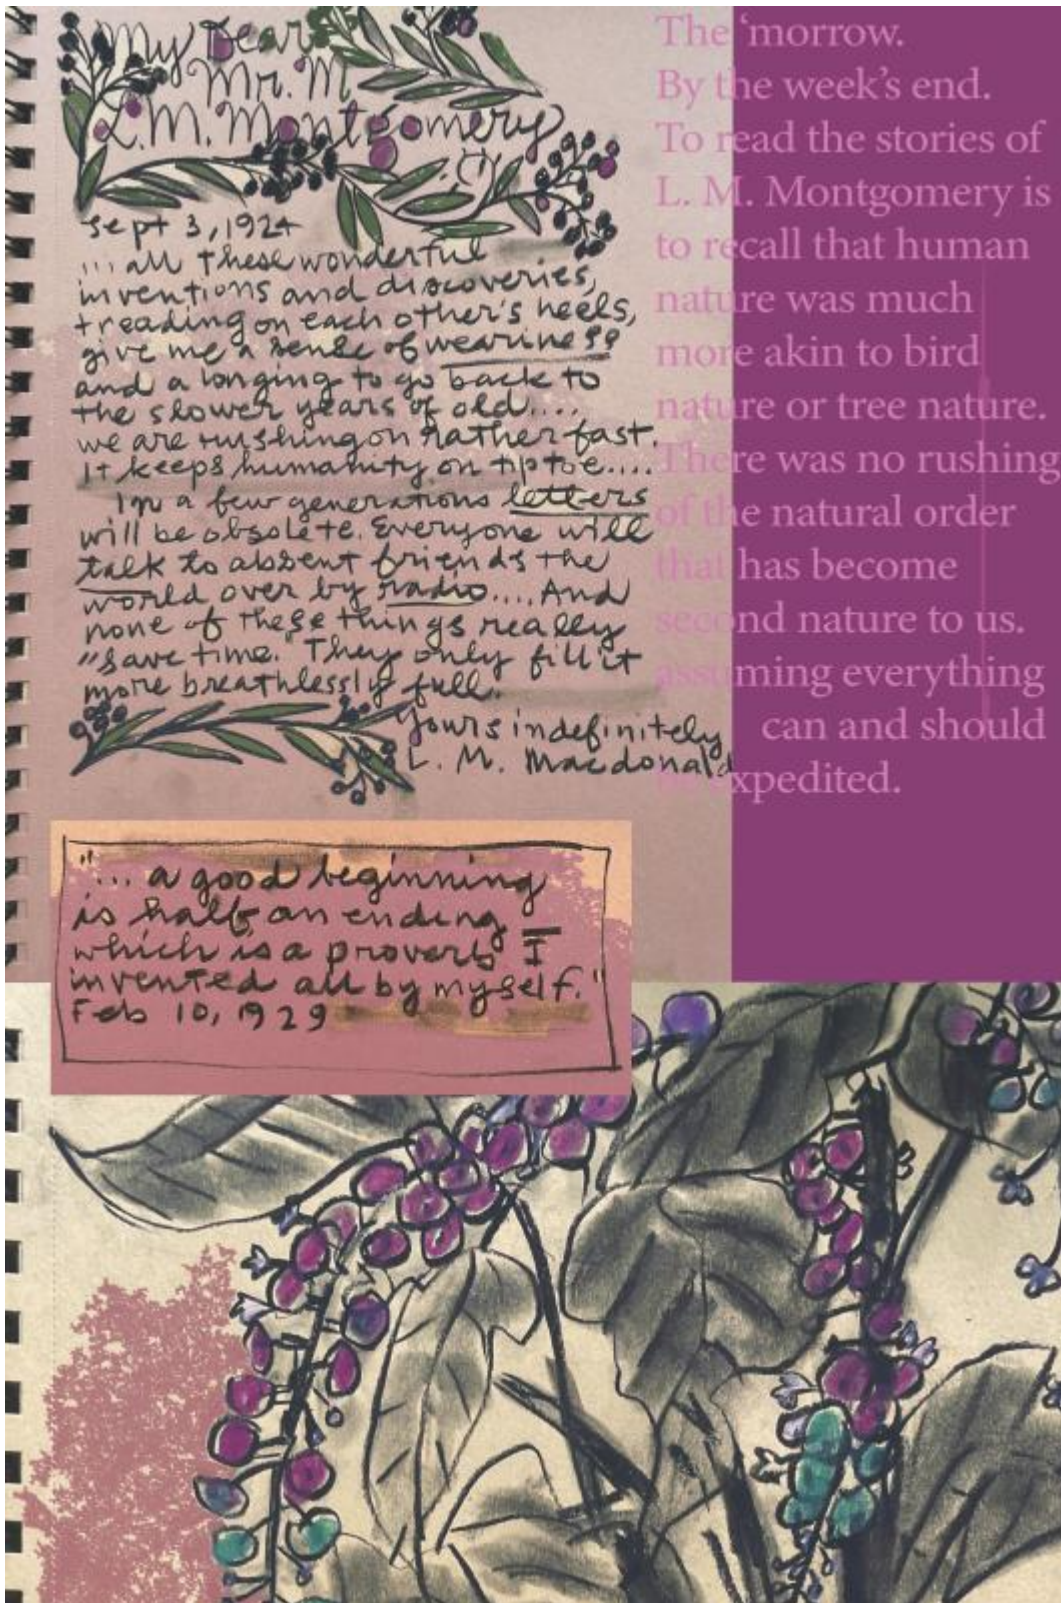 My Dear
Mr. M
L.M. Montgomery
Sept 3, 1924
... all these wonderful
inventions and discoveries,
treading on each other's heels,
give me a sense of weariness
and a longing to go back to
the slower years of old....
we are rushing on rather fast.
It keeps humanity on tiptoe....
In a few generations letters
will be obsolete. Everyone will
talk to absent friends the
world over by radio.... And
none of these things really
"save time." They only fill it
more breathlessly full.
Yours indefinitely
L. M. Macdonald
"... a good beginning
is half an ending
which is a proverb I
invented all by myself."
Feb 10, 1929
The 'morrow.
By the week's end.
To read the stories of
L. M. Montgomery is
to recall that human
nature was much
more akin to bird
nature or tree nature.
There was no rushing
of the natural order
that has become
second nature to us.
assuming everything
can and should
expedited.